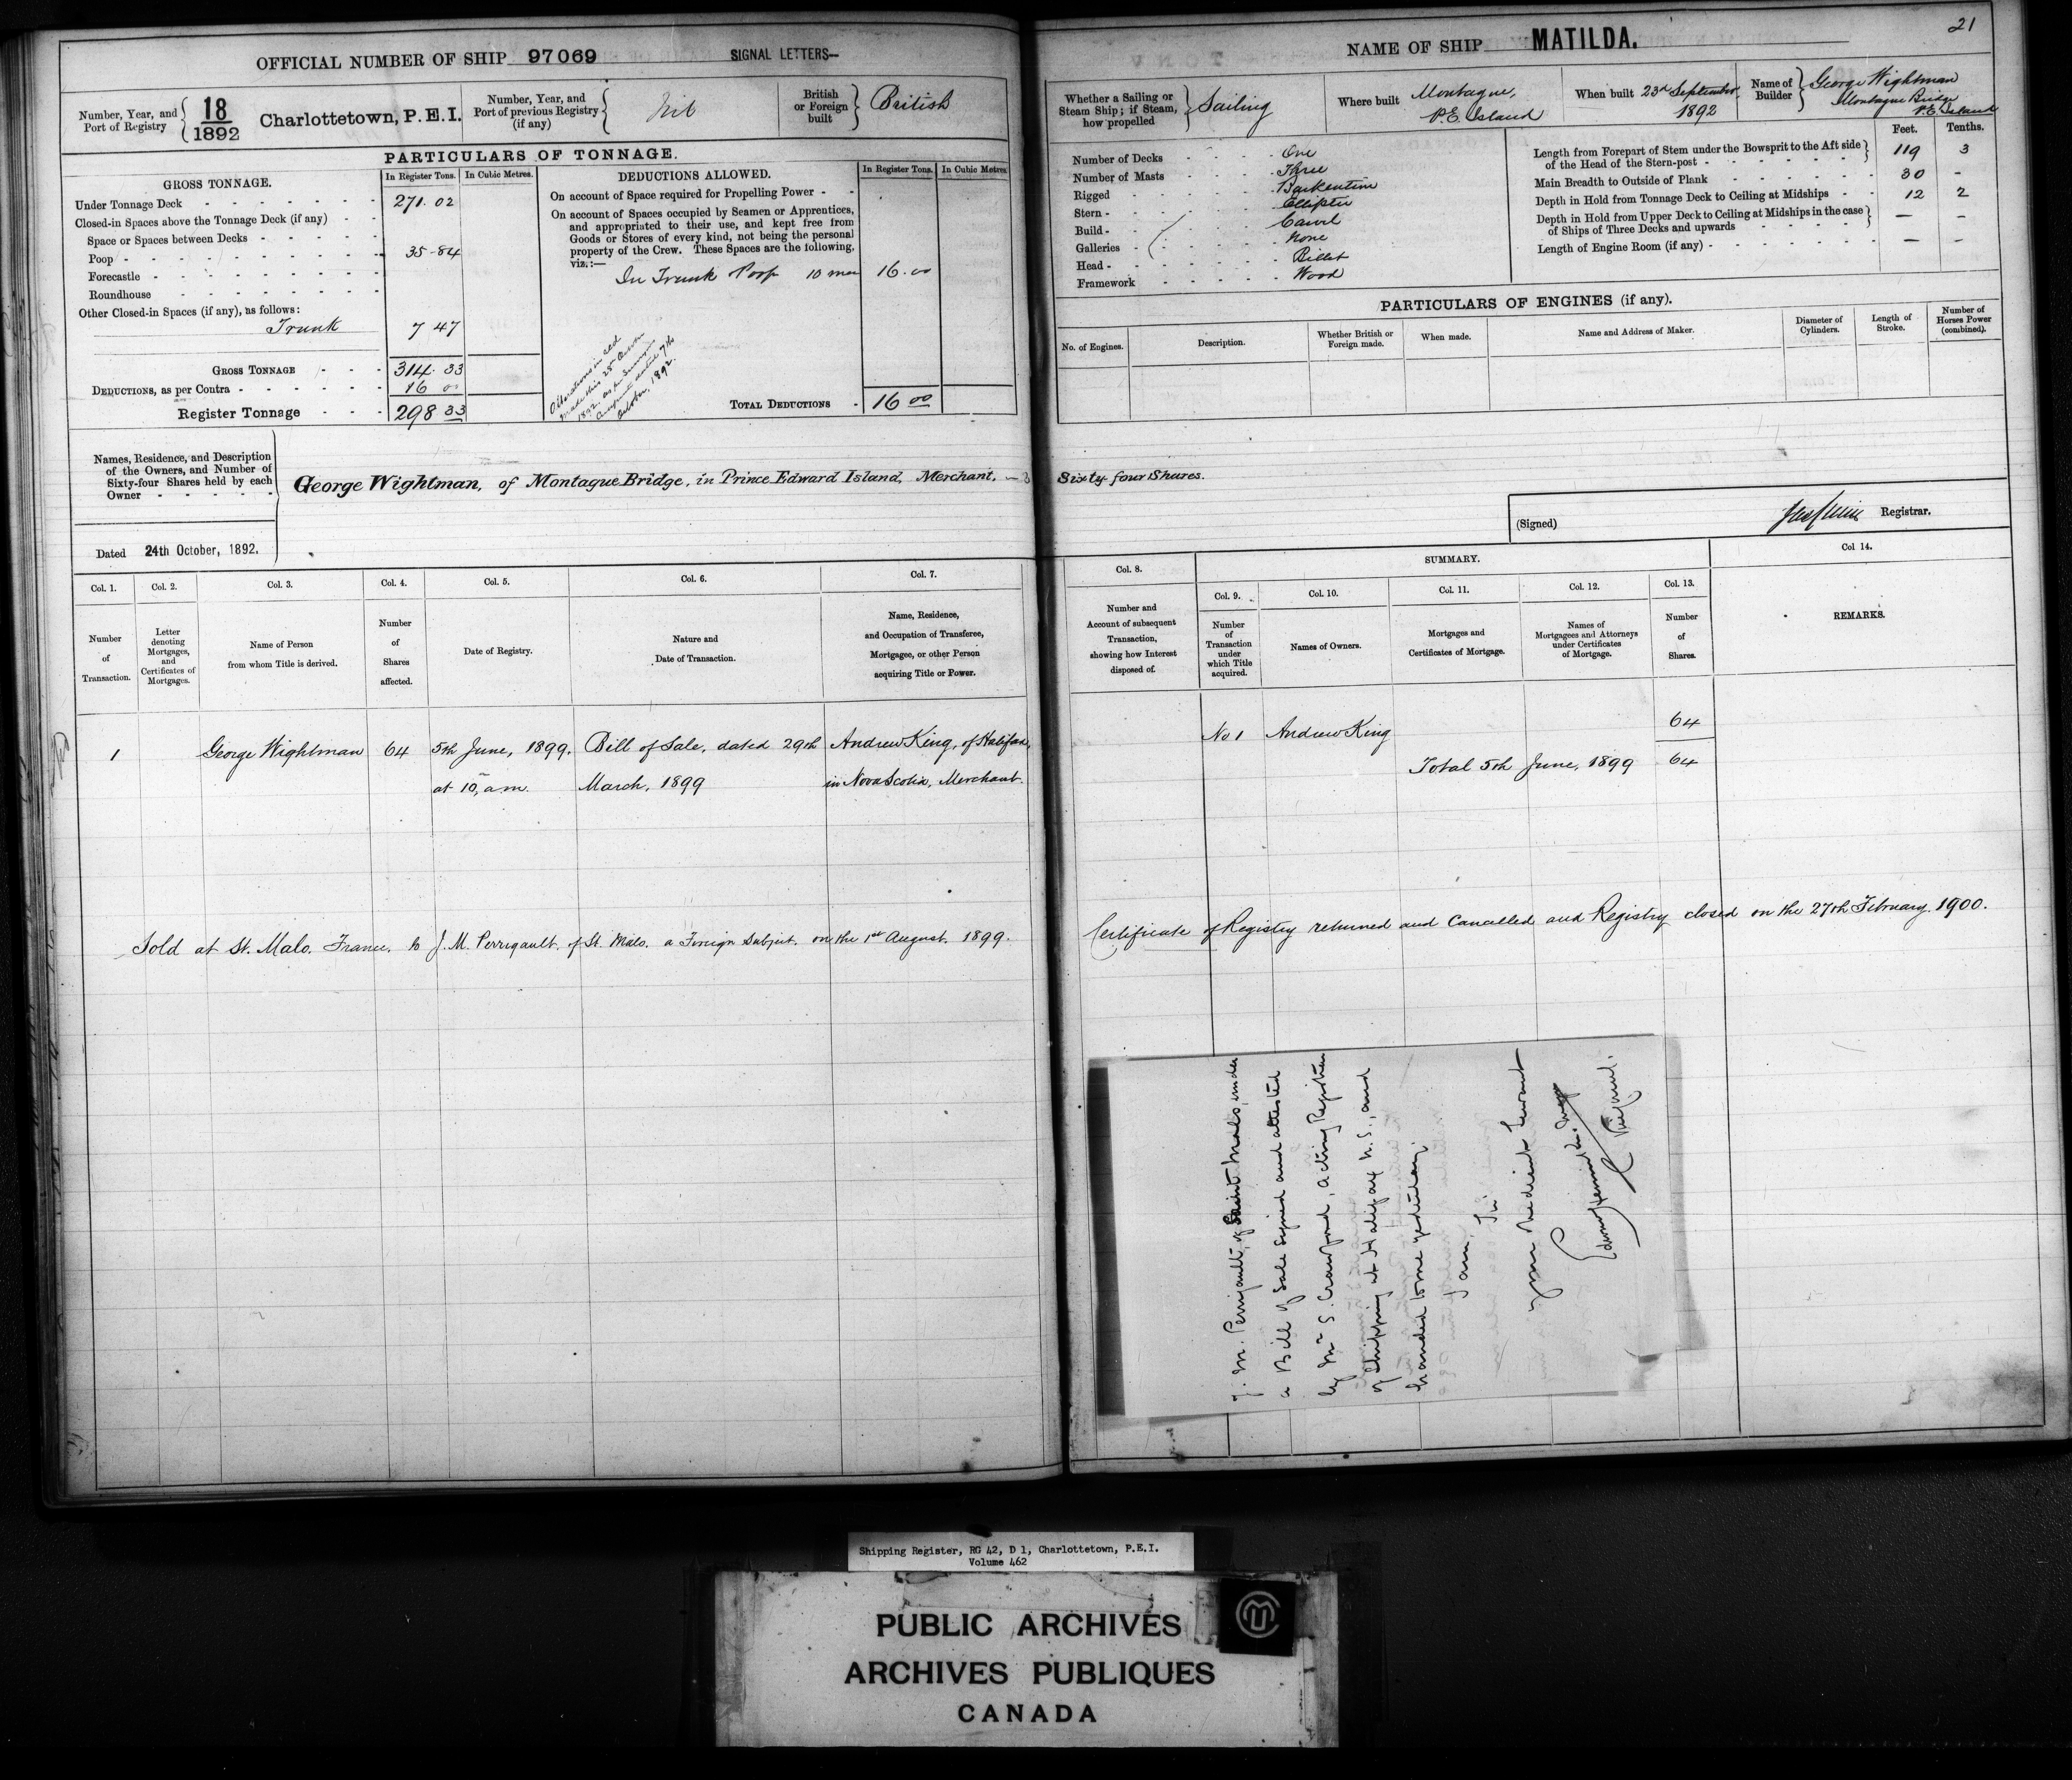 OFFICIAL NUMBER OF SHIP 97069 SIGNAL LETTERS—
Number, Year, and Port of Registry 18/1892 Charlottetown, P.E.I.
Number, Year, and Port of previous Registry (if any) Nil
British or Foreign built British
PARTICULARS OF TONNAGE.
GROSS TONNAGE. In Register Tons. In Cubic Metres.
Under Tonnage Deck 271.02
Closed-in Spaces above the Tonnage Deck (if any)
Space or Spaces between Decks
Poop 35.84
Forecastle
Roundhouse
Other Closed-in Spaces (if any), as follows:
Trunk 7 47
GROSS TONNAGE 314.33
DEDUCTIONS, as per Contra 16 00
Register Tonnage 298 33
DEDUCTIONS ALLOWED. In Register Tons. In Cubic Metres.
On account of Space required for Propelling Power
On account of Spaces occupied by Seamen or Apprentices,
and appropriated to their use, and kept free from
Goods or Stores of every kind, not being the personal
property of the Crew. These Spaces are the following,
viz.:—
In Trunk Poop 10 men 16.00
1892 as per
dated 7th
October, 1892.
TOTAL DEDUCTIONS 16 00
Names, Residence, and Description
of the Owners, and Number of
Sixty-four Shares held by each
Owner
George Wightman, of Montague Bridge, in Prince Edward Island, Merchant.
Dated 24th October, 1892.
Col. 1. Col. 2. Col. 3. Col. 4. Col. 5. Col. 6. Col. 7.
Number of Transaction.
Letter denoting Mortgages, and Certificates of Mortgages.
Name of Person from whom Title is derived.
Number of Shares affected.
Date of Registry.
Nature and Date of Transaction.
Name, Residence, and Occupation of Transferee, Mortgagee, or other Person acquiring Title or Power.
1 George Wightman 64 5th June, 1899. Bill of Sale, dated 29th Andrew King, of Halifax,
at 10, a.m. March, 1899 in Nova Scotia, Merchant.
Sold at St. Malo. France. to J. M. Perrigault. of St. Malo. a Foreign Subject. on the 1st August. 1899.
21
NAME OF SHIP MATILDA.
Whether a Sailing or Steam Ship; if Steam, how propelled Sailing
Where built Montague, P.E. Island
When built 23rd September 1892
Name of Builder George Wightman
Montague Bridge
P.E. Island
Number of Decks One
Number of Masts Three
Rigged Barkentine
Stern Elliptic
Build Carvel
Galleries None
Head Billet
Framework Wood
Feet. Tenths.
Length from Forepart of Stem under the Bowsprit to the Aft side of the Head of the Stern-post 119 3
Main Breadth to Outside of Plank 30 -
Depth in Hold from Tonnage Deck to Ceiling at Midships 12 2
Depth in Hold from Upper Deck to Ceiling at Midships in the case of Ships of Three Decks and upwards — -
Length of Engine Room (if any) — -
PARTICULARS OF ENGINES (if any).
No. of Engines. Description. Whether British or Foreign made. When made. Name and Address of Maker. Diameter of Cylinders. Length of Stroke. Number of Horses Power (combined).
Sixty four Shares.
(Signed) Registrar.
Col. 8. SUMMARY. Col 14.
Col. 9. Col. 10. Col. 11. Col. 12. Col. 13.
Number and Account of subsequent Transaction, showing how Interest disposed of.
Number of Transaction under which Title acquired.
Names of Owners.
Mortgages and Certificates of Mortgage.
Names of Mortgagees and Attorneys under Certificates of Mortgage.
Number of Shares.
REMARKS.
No 1 Andrew King 64
Total 5th June, 1899 64
Certificate of Registry returned and Cancelled and Registry closed on the 27th February. 1900.
J. M. Perrigault, of Saint Malo, under
a Bill of Sale signed and attested
by Mr S. Crawford, acting Registrar
of Shipping at Halifax N.S., and
handed to me yesterday
I am, Sir
Your obedient Servant
Shipping Register, RG 42, D 1, Charlottetown, P.E.I.
Volume 462
PUBLIC ARCHIVES
ARCHIVES PUBLIQUES
CANADA